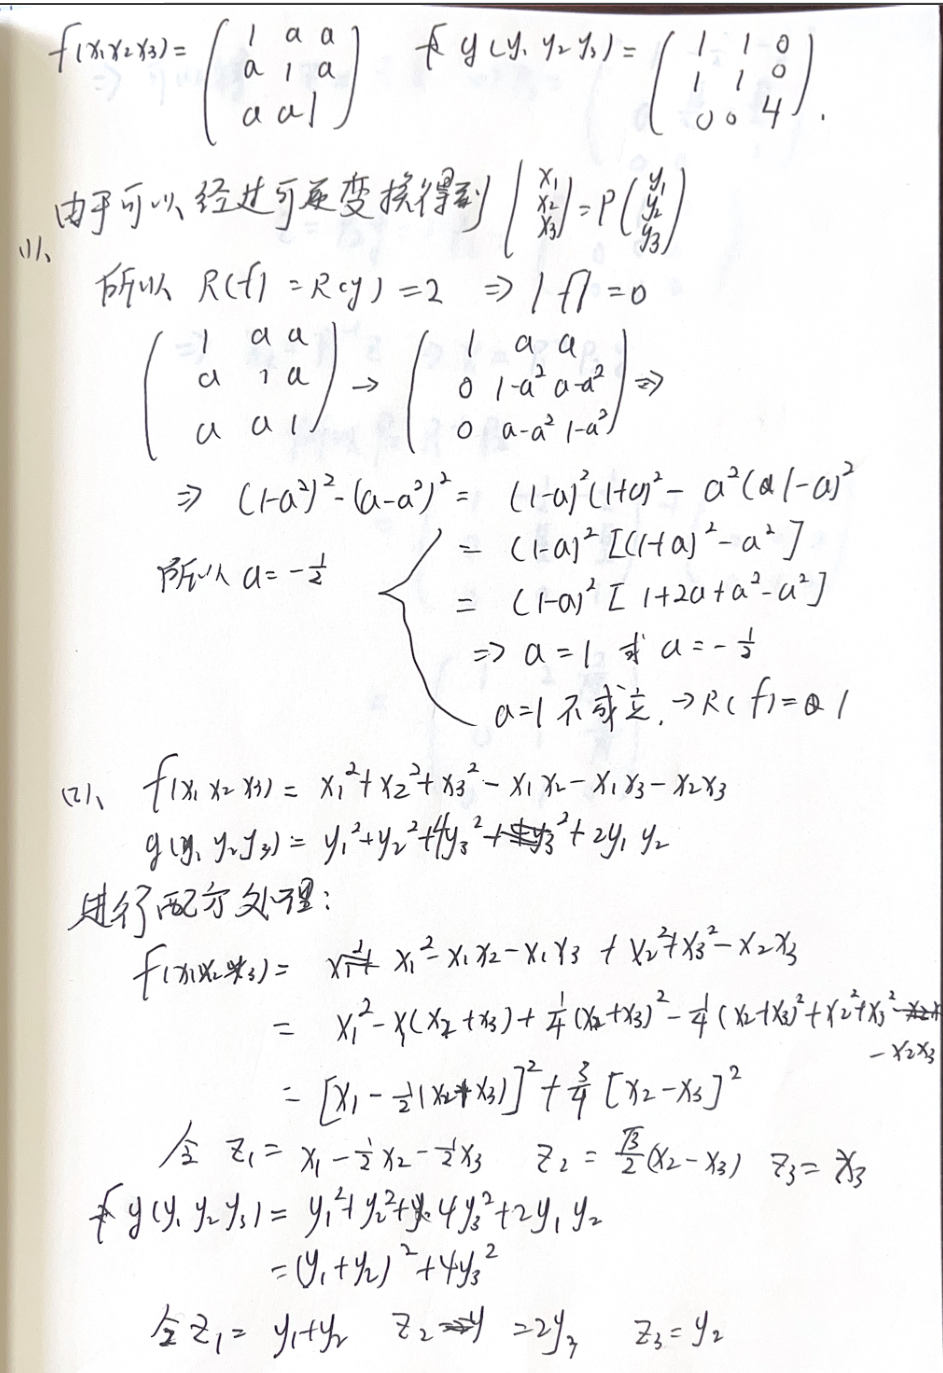 f(x₁x₂x₃) = ( 1 a a    g(y₁ y₂ y₃) = ( 1 1 0
a 1 a    1 1 0
a a 1 )    0 0 4 ).
由于可以经过可逆变换得到 ( x₁ x₂ x₃ ) = P ( y₁ y₂ y₃ )
(1)、
所以 R(f) = R(g) = 2 ⇒ |f| = 0
( 1 a a    → ( 1 a a    ⇒
a 1 a    0 1-a² a-a²
a a 1 )    0 a-a² 1-a² )
⇒ (1-a²)² - (a-a²)² = (1-a)²(1+a)² - a²(1-a)²
= (1-a)² [(1+a)² - a²]
所以 a = -1/2
= (1-a)² [1+2a+a²-a²]
⇒ a = 1 或 a = -1/2
a=1 不成立. → R(f) = 1
(2)、 f(x₁ x₂ x₃) = x₁² + x₂² + x₃² - x₁x₂ - x₁x₃ - x₂x₃
g(y₁ y₂ y₃) = y₁² + y₂² + 4y₃² + 2y₁y₂
进行配方处理:
f(x₁x₂x₃) = x₁² - x₁x₂ - x₁x₃ + x₂² + x₃² - x₂x₃
= x₁² - x₁(x₂+x₃) + 1/4(x₂+x₃)² - 1/4(x₂+x₃)² + x₂² + x₃²
- x₂x₃
= [x₁ - 1/2(x₂+x₃)]² + 3/4[x₂-x₃]²
令 z₁ = x₁ - 1/2x₂ - 1/2x₃  z₂ = √3/2(x₂-x₃)  z₃ = x₃
g(y₁ y₂ y₃) = y₁² + y₂² + 4y₃² + 2y₁y₂
= (y₁+y₂)² + 4y₃²
令 z₁ = y₁+y₂  z₂ = 2y₃  z₃ = y₂